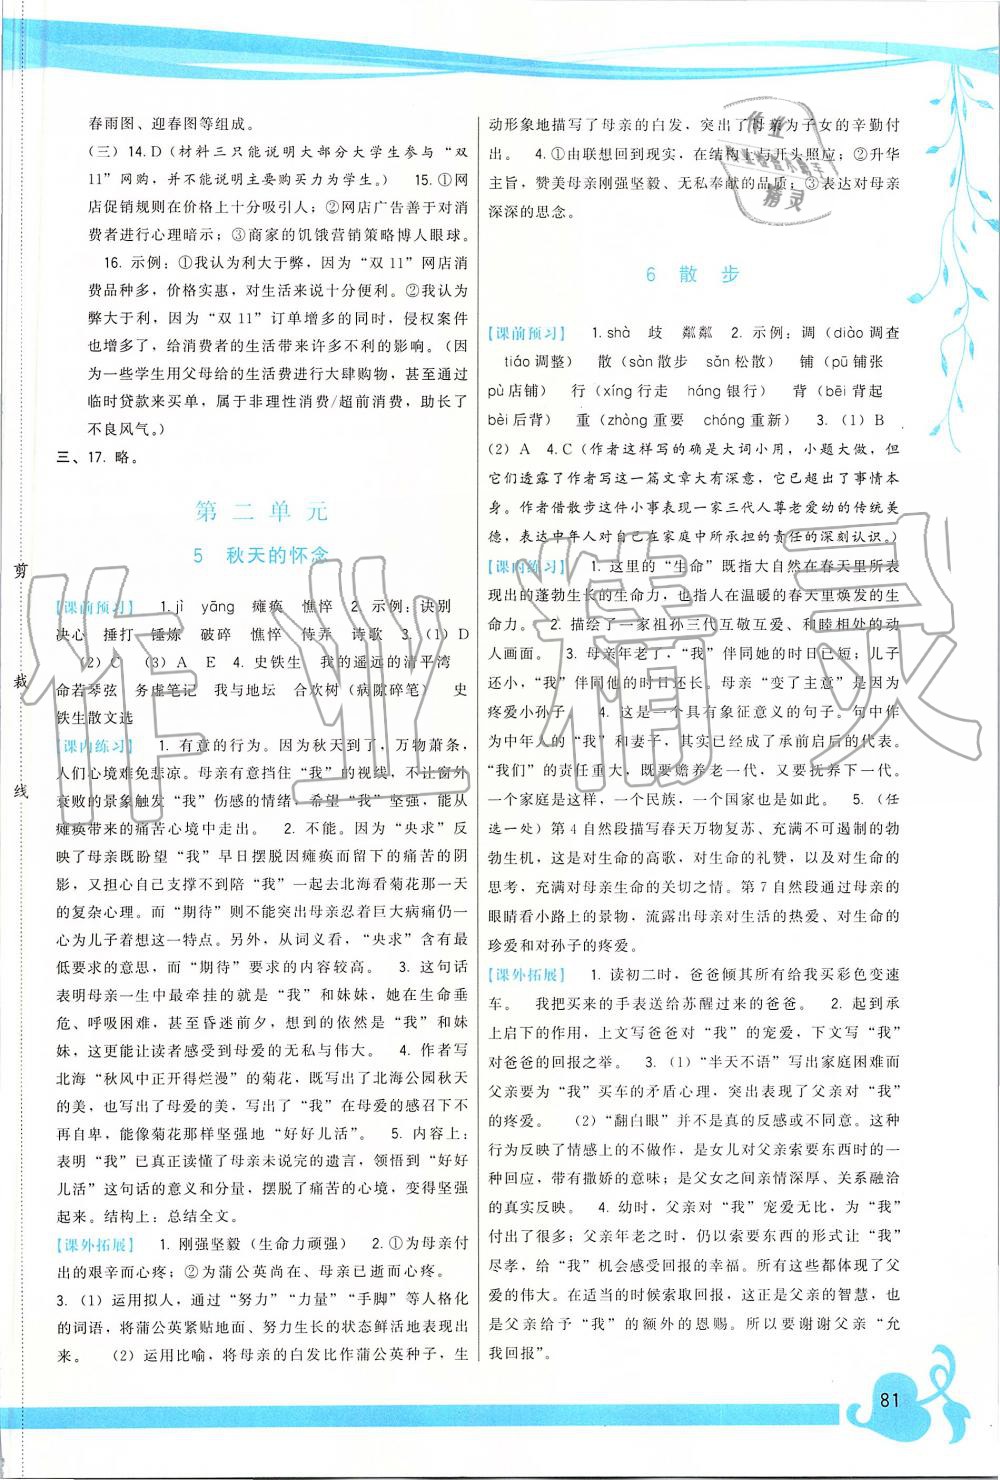 春雨图、迎春图等组成。
(三) 14. D (材料三只能说明大部分大学生参与“双
11”网购,并不能说明主要购买力为学生。) 15. ①网
店促销规则在价格上十分吸引人;②网店广告善于对消
费者进行心理暗示;③商家的饥饿营销策略博人眼球。
16. 示例:①我认为利大于弊,因为“双11”网店消
费品种多,价格实惠,对生活来说十分便利。②我认为
弊大于利,因为“双11”订单增多的同时,侵权案件
也增多了,给消费者的生活带来许多不利的影响。(因
为一些学生用父母给的生活费进行大肆购物,甚至通过
临时贷款来买单,属于非理性消费/超前消费,助长了
不良风气。)
三、17. 略。
第二单元
5 秋天的怀念
【课前预习】 1. jì yāng 瘫痪 憔悴 2. 示例:诀别
决心 捶打 锤炼 破碎 憔悴 侍弄 诗歌 3. (1) D
(2) C (3) A E 4. 史铁生 我的遥远的清平湾
命若琴弦 务虚笔记 我与地坛 合欢树(病隙碎笔) 史
铁生散文选
【课内练习】 1. 有意的行为。因为秋天到了,万物萧条,
人们心境难免悲凉。母亲有意挡住“我”的视线,不让窗外
衰败的景象触发“我”伤感的情绪,希望“我”坚强,能从
瘫痪带来的痛苦心境中走出。 2. 不能。因为“央求”反
映了母亲既盼望“我”早日摆脱因瘫痪而留下的痛苦的阴
影,又担心自己支撑不到陪“我”一起去北海看菊花那一天
的复杂心理。而“期待”则不能突出母亲忍着巨大病痛仍一
心为儿子着想这一特点。另外,从词义看,“央求”含有最
低要求的意思,而“期待”要求的内容较高。 3. 这句话
表明母亲一生中最牵挂的就是“我”和妹妹,她在生命垂
危、呼吸困难,甚至昏迷前夕,想到的依然是“我”和妹
妹,这更能让读者感受到母爱的无私与伟大。 4. 作者写
北海“秋风中正开得烂漫”的菊花,既写出了北海公园秋天
的美,也写出了母爱的美,写出了“我”在母爱的感召下不
再自卑,能像菊花那样坚强地“好好儿活”。 5. 内容上:
表明“我”已真正读懂了母亲未说完的遗言,领悟到“好好
儿活”这句话的意义和分量,摆脱了痛苦的心境,变得坚强
起来。结构上:总结全文。
【课外拓展】 1. 刚强坚毅(生命力顽强) 2. ①为母亲付
出的艰辛而心疼;②为蒲公英尚在、母亲已逝而心疼。
3. (1) 运用拟人,通过“努力”“力量”“手脚”等人格化
的词语,将蒲公英紧贴地面、努力生长的状态鲜活地表现出
来。 (2) 运用比喻,将母亲的白发比作蒲公英种子,生
动形象地描写了母亲的白发,突出了母亲为子女的辛勤付
出。 4. ①由联想回到现实,在结构上与开头照应;②升华
主旨,赞美母亲刚强坚毅、无私奉献的品质;③表达对母亲
深深的思念。
6 散步
【课前预习】 1. shà 歧 粼粼 2. 示例:调 (diào 调查
tiáo 调整) 散 (sàn 散步 sǎn 松散) 铺 (pū 铺张
pù 店铺) 行 (xíng 行走 háng 银行) 背 (bēi 背起
bèi 后背) 重 (zhòng 重要 chóng 重新) 3. (1) B
(2) A 4. C (作者这样写的确是大词小用,小题大做,但
它们透露了作者写这一篇文章大有深意,它已超出了事情本
身。作者借散步这件小事表现一家三代人尊老爱幼的传统美
德,表达中年人对自己在家庭中所承担的责任的深刻认识。)
【课内练习】 1. 这里的“生命”既指大自然在春天里所表
现出的蓬勃生长的生命力,也指人在温暖的春天里焕发的生
命力。 2. 描绘了一家祖孙三代互敬互爱、和睦相处的动
人画面。 3. 母亲年老了,“我”伴同她的时日已短;儿子
还小,“我”伴同他的时日还长。母亲“变了主意”是因为
疼爱小孙子。 4. 这是一个具有象征意义的句子。句中作
为中年人的“我”和妻子,其实已经成了承前启后的代表。
“我们”的责任重大,既要赡养老一代,又要抚养下一代。
一个家庭是这样,一个民族,一个国家也是如此。 5. (任
选一处) 第4自然段描写春天万物复苏、充满不可遏制的勃
勃生机,这是对生命的高歌,对生命的礼赞,以及对生命的
思考,充满对母亲生命的关切之情。第7自然段通过母亲的
眼睛看小路上的景物,流露出母亲对生活的热爱、对生命的
珍爱和对孙子的疼爱。
【课外拓展】 1. 读初二时,爸爸倾其所有给我买彩色变速
车。 我把买来的手表送给苏醒过来的爸爸。 2. 起到承
上启下的作用,上文写爸爸对“我”的宠爱,下文写“我”
对爸爸的回报之举。 3. (1)“半天不语”写出家庭困难而
父亲要为“我”买车的矛盾心理,突出表现了父亲对“我”
的疼爱。 (2)“翻白眼”并不是真的反感或不同意。这种
行为反映了情感上的不做作,是女儿对父亲索要东西时的一
种回应,带有撒娇的意味;是父女之间亲情深厚、关系融洽
的真实反映。 4. 幼时,父亲对“我”宠爱无比,为“我”
付出了很多;父亲年老之时,仍以索要东西的形式让“我”
尽孝,给“我”机会感受回报的幸福。所有这些都体现了父
爱的伟大。在适当的时候索取回报,这正是父亲的智慧,也
是父亲给予“我”的额外的恩赐。所以要谢谢父亲“允
我回报”。
剪
裁
线
作业精灵
作业
精灵
81